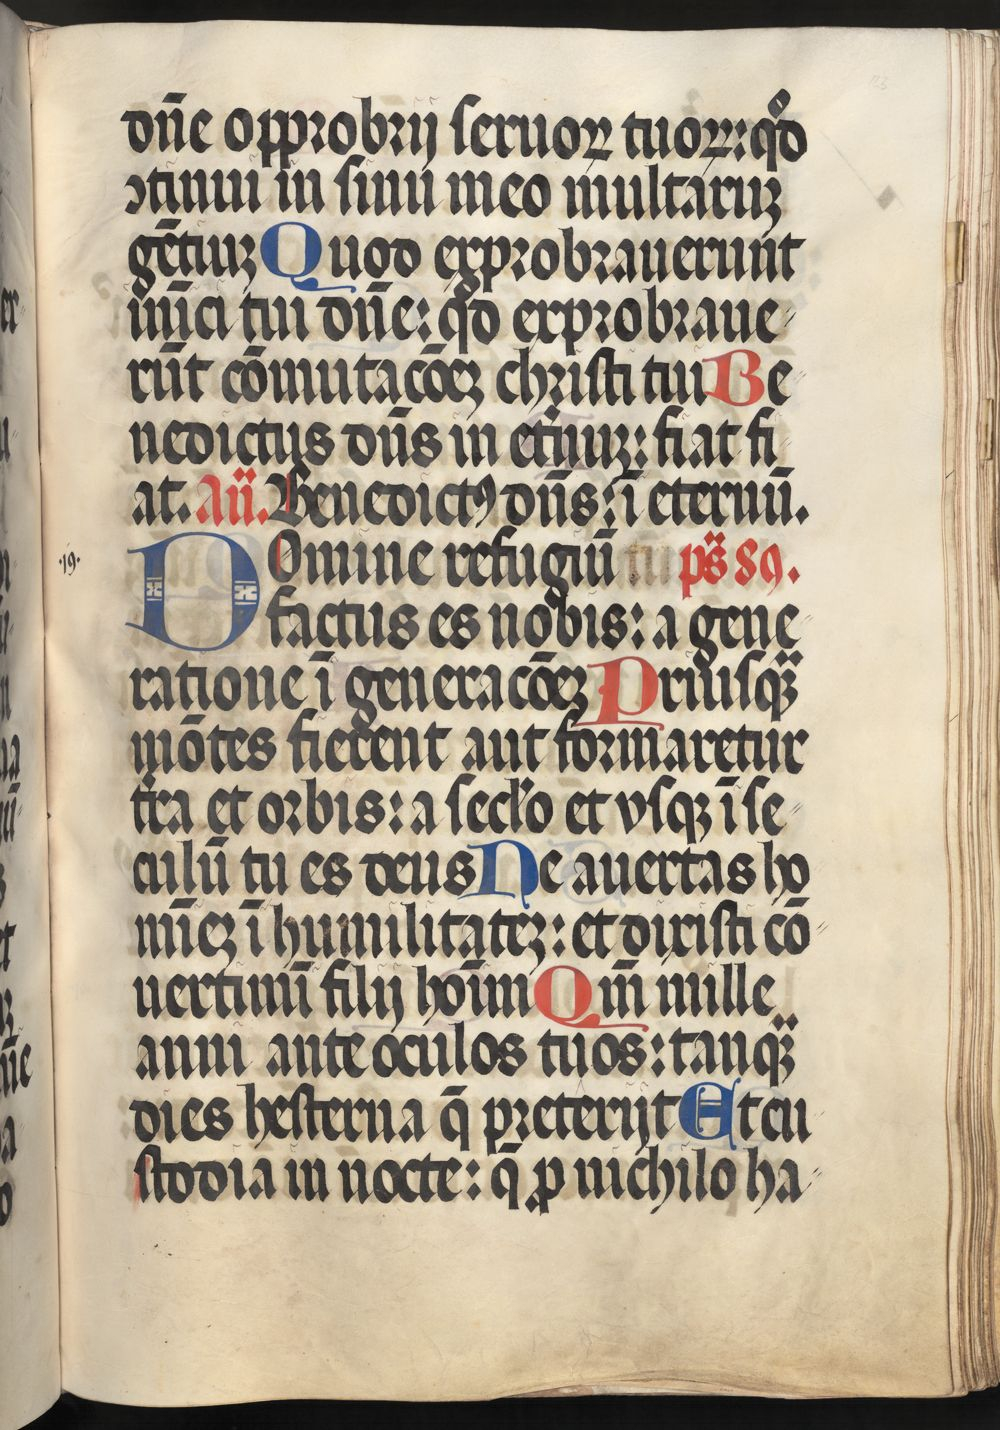 dn̄e opprobrij seruoꝝ tuoꝝ: qͦd
ↄtinui in sinu meo multaruꝫ
gētiuꝫ Quod exprobrauerunt
inīici tui dn̄e: qͦd exprobraue
rūt cōmutacōeꝫ christi tui Be
nedictus dn̄s in et̄nuꝫ: fiat fi
at. An̄. Benedictꝰ dn̄s: ī eternū.
·19·
DOmine refugiū ps̄ 89.
factus es nobis: a gene
ratione ī generacōeꝫ Priusqꝫ̈
mōtes fierent aut formaretur
t̄ra et orbis: a secl̓o et vsqꝫ ī se
culū tu es deus Ne auertas ho
mīeꝫ ī humilitateꝫ: et dixisti cō
uertimī filij hoīm Qm̄ mille
anni ante oculos tuos: tanqꝫ̈
dies hesterna q̄ preterijt Et cu
stodia in nocte: q̄ ꝓ nichilo ha